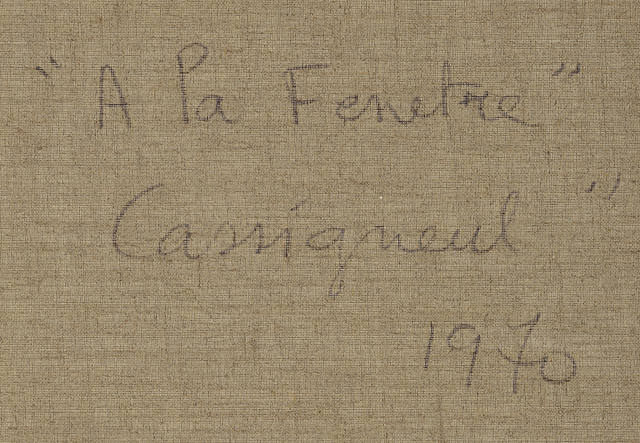 " A la Fenetre "
Cassigneul "
1970